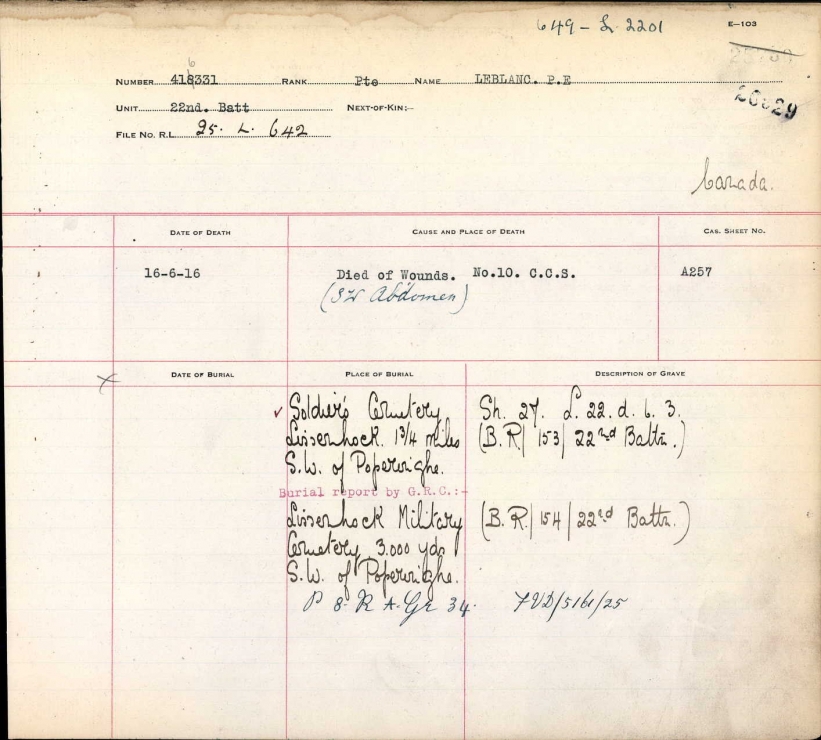 649 - L. 2201
E—103
20029
NUMBER 418331 6 RANK Pte NAME LEBLANC. P.E
UNIT 22nd. Batt NEXT-OF-KIN:—
FILE NO. R.L. 25. L. 642
Canada.
DATE OF DEATH CAUSE AND PLACE OF DEATH CAS. SHEET NO.
16-6-16 Died of Wounds. No.10. C.C.S. A257
(SW Abdomen)
DATE OF BURIAL PLACE OF BURIAL DESCRIPTION OF GRAVE
Soldier's Cemetery Sh. 27. L. 22. d. 6. 3.
Lissenhock. 1 3/4 miles (B.R/ 153/ 22nd Battn.)
S.W. of Poperinghe.
Burial report by G.R.C.:-
Lissenhock Military (B.R./ 154/ 22nd Battn.)
Cemetery 3.000 yds
S.W. of Poperinghe.
P 8. R A. Gr 34.